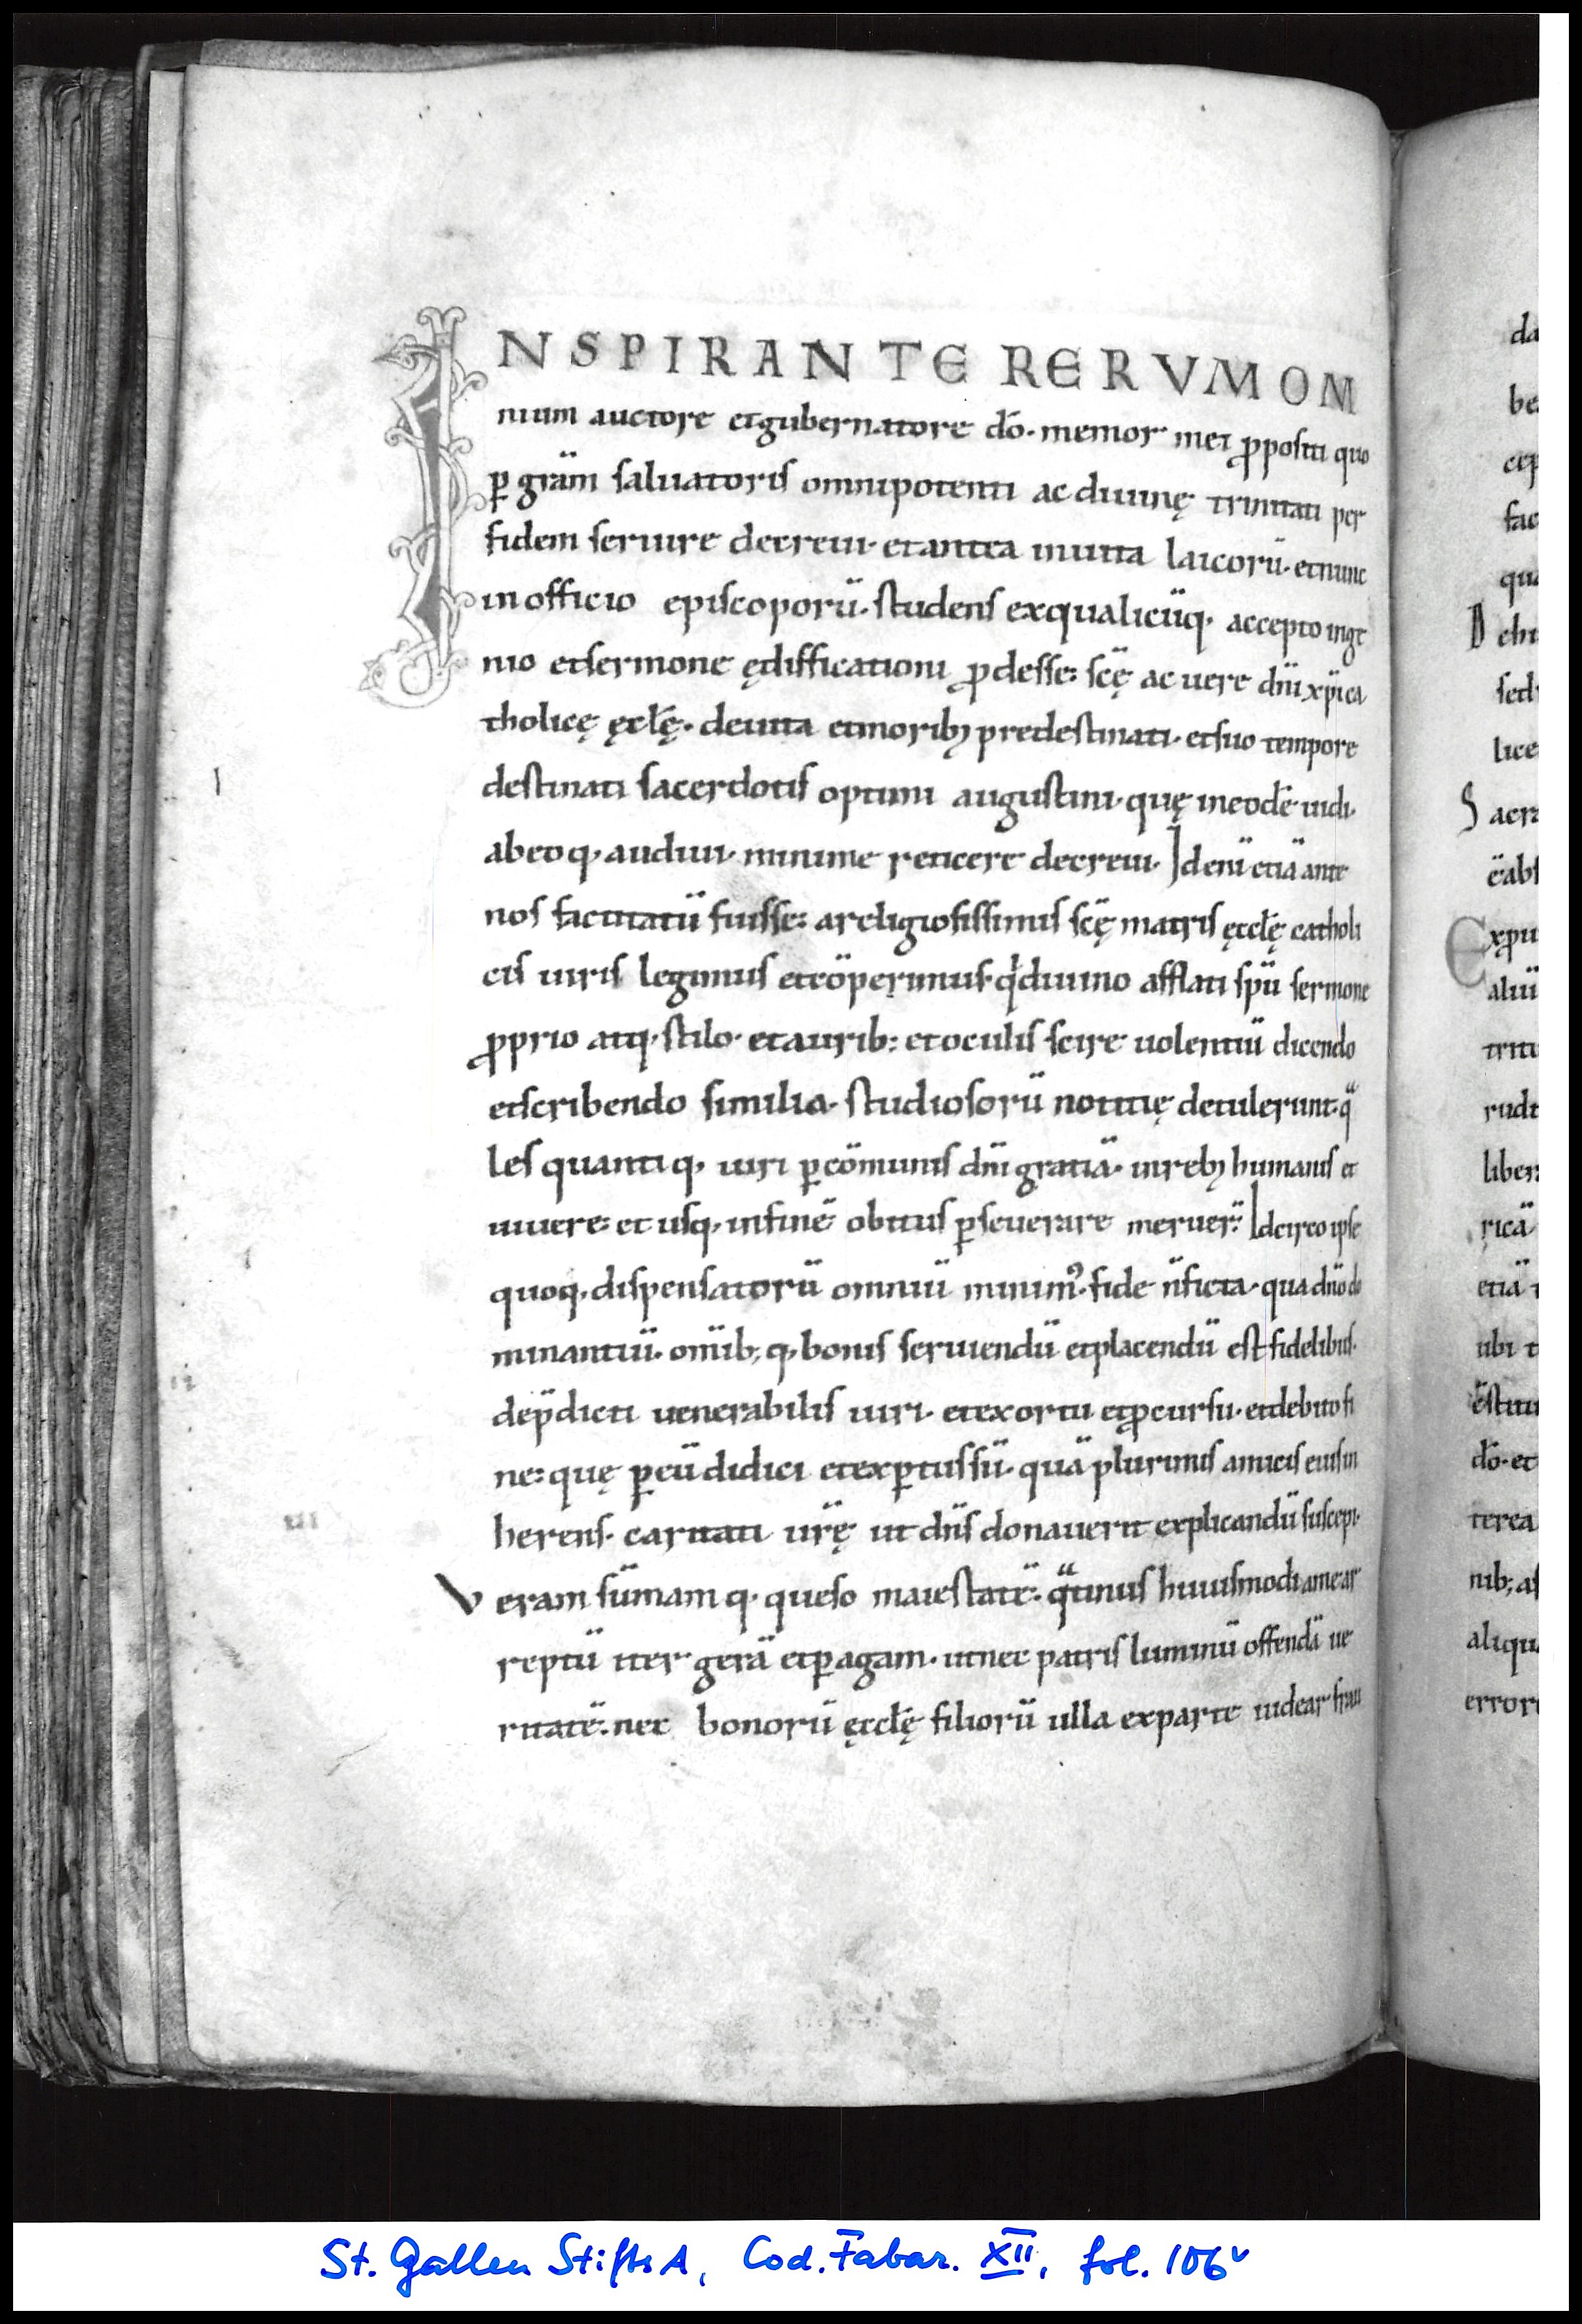 INSPIRANTE RERVM OM
nium auctore et gubernatore dō· memor mei ꝓpositi quo
ꝑ grām saluatoris omnipotenti ac diuinę trinitati per
fidem seruire decreui· et antea inuita laicorū· et nunc
in officio episcoporū· studens ex qualicūq· accepto inge
nio et sermone ędifficationi ꝓdesse: scę̄ ac uere dn̄i xp̄i ca
tholicę ęclę̄· de uita et morib; predestinati· et suo tempore
destinati sacerdotis optimi augustini· quę in eodē uidi·
ab eoq· audiui· minime reticere decreui· Id enī etiā ante
nos factitatū fuisse: a religiosissimis scę̄ matris ęcclę̄ catholi
cis uiris legimus et cōperimus· qd diuino afflati spū sermone
ꝓprio atq· stilo· et aurib: et oculis scire uolentiū dicendo
et scribendo similia· studiosorū notitię detulerunt· qa
les quantiq· uiri ꝑ cōmunis dn̄i gratiā· in reb; humanis et
uiuere: et usq· in finē obitus ꝑseuerare meruer̄: Idcirco ipse
quoq· dispensatorū omniū minimꝰ· fide n̄ ficta· qua dn̄o do
minantiū· om̄ib; q· bonis seruiendū et placendū est fidelibus·
de p̄dicti uenerabilis uiri· et exortu et ꝓcursu· et debito fi
ne: quę ꝑ eū didici et exꝑtus sū· quā plurimis amicis eius in
herens· caritati ur̄ę ut dn̄s donauerit explicandū suscepi·
Veram sūmamq· queso maiestatē: qatinus huiusmodi a me ar
reptū iter gerā et ꝑagam· ut nec patris luminū offendā ue
ritatē: nec bonorū ęcclę̄ filiorū ulla ex parte uidear frau
I
II
III
da
be
cep
fac
qua
D
sed
lice
S acra
ē abs
E xpu
aliū
tritu
rudi
liber
ricā
etiā
ubi
ē
dō· et
terea
nib; as
aliqu
error
St. Gallen StiftsA, Cod. Fabar. XII, fol. 106v